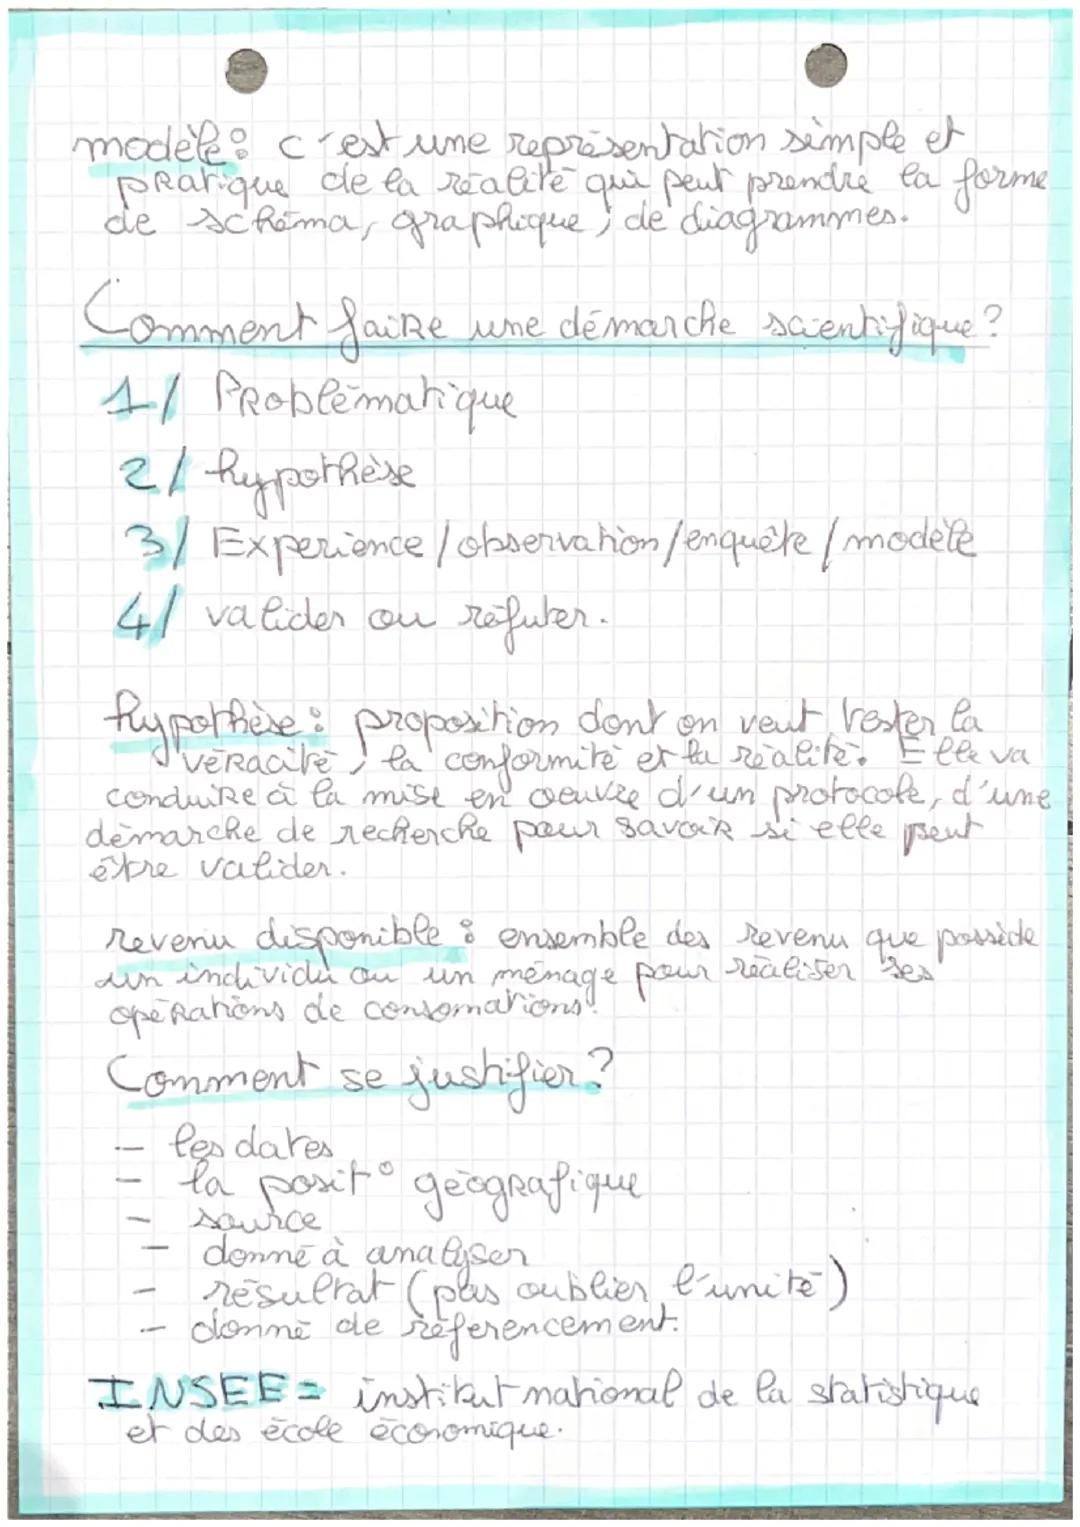 modèle : c'est une représentation simple et
pratique de la réalité qui peut prendre la forme
de schéma, graphique, de diagrammes.
Comment faire une démarche scientifique ?
1/ Problématique
2/ hypothèse
3/ Experience / observation / enquête / modèle
4/ valider ou réfuter.
hypothèse : proposition dont on veut tester la
véracité, la conformité et la réalité. Elle va
conduire à la mise en oeuvre d'un protocole, d'une
démarche de recherche pour savoir si elle peut
être valider.
revenu disponible : ensemble des revenu que possède
un individu ou un ménage pour réaliser ses
opérations de consomations.
Comment se justifier ?
- les dates
- la posit° géografique
- source
- donné à analyser
- résultat (pas oublier l'unité)
- donné de référencement.
INSEE = institut national de la statistique
et des école économique.